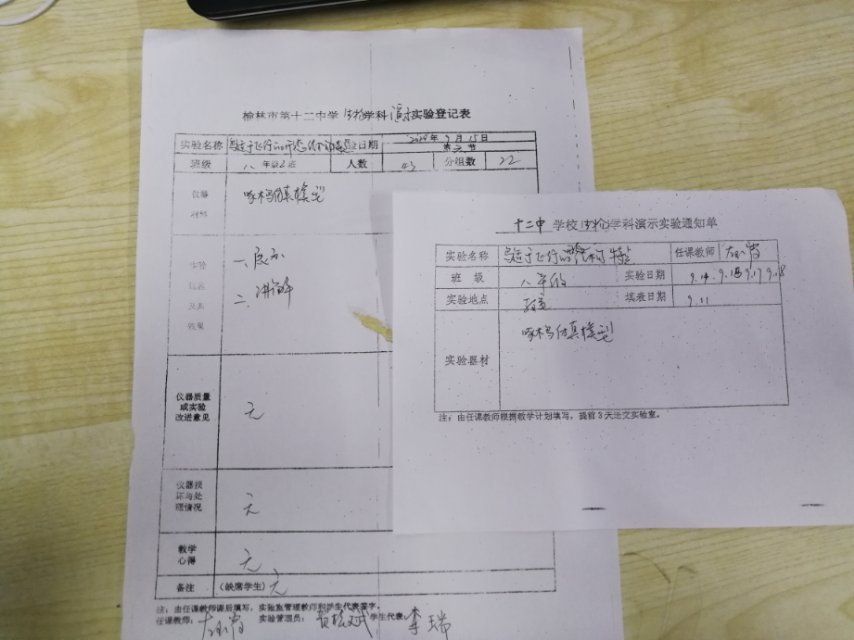 榆林市第十二中学 学科演示实验登记表
实验名称 鸟适于飞行的形态 日期 9月15日
班级 八年级2班 人数 43 分组数 22
仪器
材料
啄木鸟仿真模型
一、展示
二、讲解
效果
仪器质量
或实验
改进意见
无
仪器损
坏与处
理情况
无
教学
心得
无
备注 (缺席学生) 无
注:由任课教师课后填写,实验监管理教师和学生代表签字。
任课教师: 实验管理员: 学生代表: 李瑞
十二中 学校 学科演示实验通知单
实验名称 鸟适于飞行的 特点 任课教师
班 级 八年级 实验日期 9.14、9.15、9.17、9.18
实验地点 填表日期 9.11
实验器材
啄木鸟仿真模型
注:由任课教师根据教学计划填写,提前3天送交实验室。